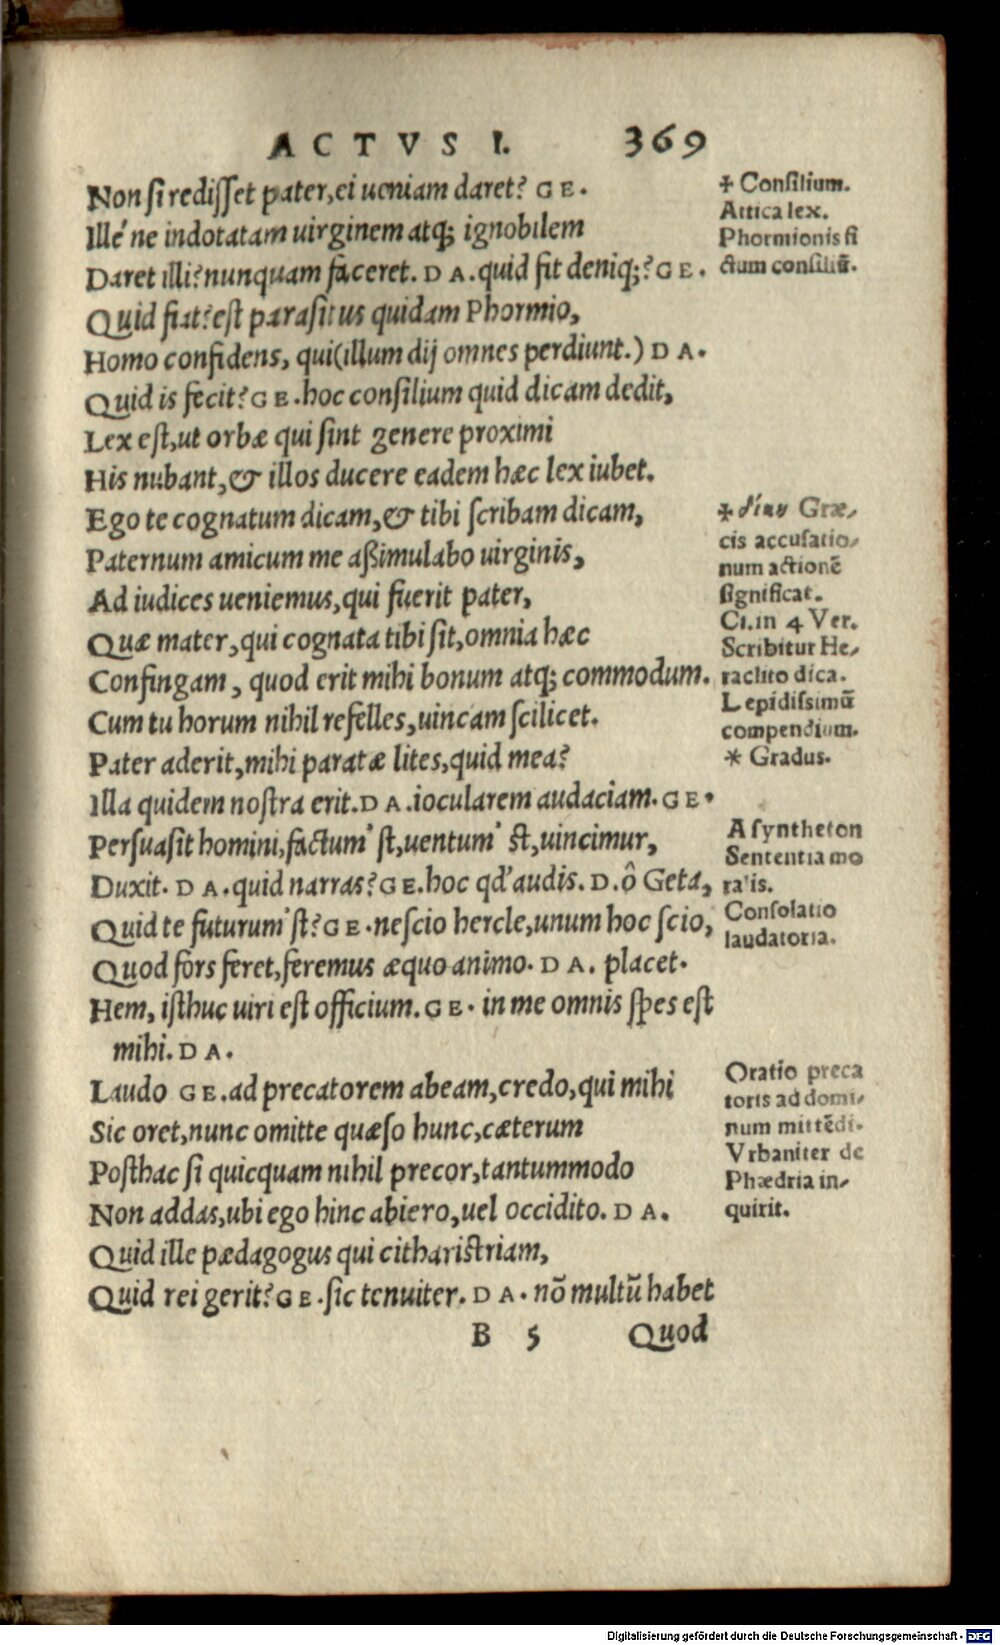 ACTVS I. 369
Non si redisset pater, ei ueniam daret? GE.
Ille' ne indotatam uirginem atq; ignobilem
Daret illi? nunquam faceret. DA. quid fit deniq;? GE.
Quid fiat? est parasitus quidam Phormio,
Homo confidens, qui (illum dij omnes perdiunt.) DA.
Quid is fecit? GE. hoc consilium quid dicam dedit,
Lex est, ut orbæ qui sint genere proximi
His nubant, & illos ducere eadem hæc lex iubet.
Ego te cognatum dicam, & tibi scribam dicam,
Paternum amicum me aßimulabo uirginis,
Ad iudices ueniemus, qui fuerit pater,
Quæ mater, qui cognata tibi sit, omnia hæc
Confingam, quod erit mihi bonum atq; commodum.
Cum tu horum nihil refelles, uincam scilicet.
Pater aderit, mihi paratæ lites, quid mea?
Illa quidem nostra erit. DA. iocularem audaciam. GE.
Persuasit homini, factum' st, uentum' st, uincimur,
Duxit. DA. quid narras? GE. hoc qd' audis. D. ô Geta,
Quid te futurum' st? GE. nescio hercle, unum hoc scio,
Quod fors feret, feremus æquo animo. DA. placet.
Hem, isthuc uiri est officium. GE. in me omnis spes est
mihi. DA.
Laudo GE. ad precatorem abeam, credo, qui mihi
Sic oret, nunc omitte quæso hunc, cæterum
Posthac si quicquam nihil precor, tantummodo
Non addas, ubi ego hinc abiero, uel occidito. DA.
Quid ille pædagogus qui citharistriam,
Quid rei gerit? GE. sic tenuiter. DA. nõ multũ habet
B 5 Quod
✢ Consilium.
Attica lex.
Phormionis fi
ctum consiliũ.
✢ δίκην Græ-
cis accusatio-
num actionẽ
significat.
Ci. in 4 Ver.
Scribitur He-
raclito dica.
Lepidissimũ
compendium.
* Gradus.
Asyntheton
Sententia mo
ralis.
Consolatio
laudatoria.
Oratio preca
toris ad domi-
num mittẽdi.
Vrbaniter de
Phædria in-
quirit.
Digitalisierung gefördert durch die Deutsche Forschungsgemeinschaft - DFG